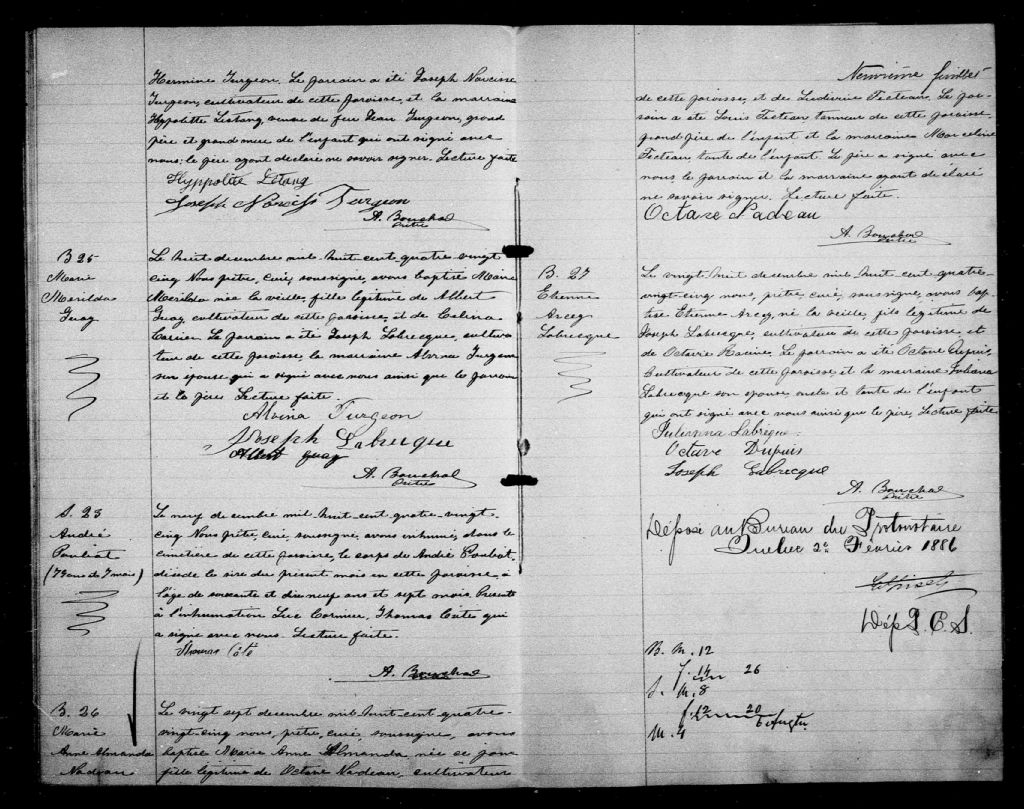 Hermine Turgeon. Le parrain a été Joseph Narcisse
Turgeon, cultivateur de cette paroisse, et la marraine
Hyppolitte Lestang, veuve de feu Jean Turgeon, grand
père et grand mère de l'enfant qui ont signé avec
nous; le père ayant déclaré ne savoir signer. Lecture faite
Hyppolite Letang
Joseph Narciss Turgeon
A. Bouchard
Ptre
B 25
Marie
Merilda
Guay
Le huit decembre mil huit-cent-quatre-vingt
cinq Nous prêtre, curé, soussigné, avons baptisé Marie
Merilda née la veille, fille légitime de Albert
Guay, cultivateur de cette paroisse, et de
Carrier. Le parrain a été Joseph Labrecque, cultiva-
teur de cette paroisse, la marraine Alvina Turgeon
son épouse qui a signé avec nous ainsi que le parrain
et le père. Lecture faite.
Alvina Turgeon
Joseph Labrecque
Albert Guay
A. Bouchard
Ptre
S. 23
André
Pouliot
(79 ans & 7 mois)
Le neuf decembre mil huit-cent-quatre-vingt-
cinq Nous prêtre, curé, soussigné, avons inhumé, dans le
cimetière de cette paroisse, le corps de André Pouliot
décédé le six du présent mois en cette paroisse, à
l'âge de soixante et dix neuf ans et sept mois. Présents
à l'inhumation Luc Cormier, Thomas Côté qui
a signé avec nous. Lecture faite.
Thomas Côté
A. Bouchard
B. 26
Marie
Anne Almanda
Nadeau
Le vingt sept decembre mil huit-cent quatre-
vingt-cinq nous, prêtre, curé, soussigné, avons
baptisé Marie Anne Almanda née ce jour
fille légitime de Octave Nadeau, cultivateur
Neuvième feuillet
de cette paroisse, et de Ludivine Fecteau. Le par-
rain a été Louis Fecteau tanneur de cette paroisse
grand père de l'enfant et la marraine Marceline
Fecteau, tante de l'enfant. Le père a signé avec
nous le parrain et la marraine ayant déclaré
ne savoir signer. Lecture faite.
Octave Nadeau
A. Bouchard
Ptre
B. 27
Etienne
Arcey
Labrecque
Le vingt-huit decembre mil huit-cent-quatre-
vingt-cinq nous, prêtre, curé, soussigné, avons bap-
tisé Etienne Arcey, né la veille, fils légitime de
Joseph Labrecque, cultivateur de cette paroisse et
de Octavie Racine. Le parrain a été Octave Dupuis,
cultivateur de cette paroisse et la marraine Juliana
Labrecque son épouse, oncle et tante de l'enfant
qui ont signé avec nous ainsi que le père. Lecture faite
Julienna Labrêque
Octave Dupuis
Joseph Labrecque
A. Bouchard
Ptre
Déposé au Bureau du Protonotaire
Quebec 2 Février 1886
Dép P. C. S.
B. M. 12
f. 14 26
S. M. 8
f. 12 20
M. 4